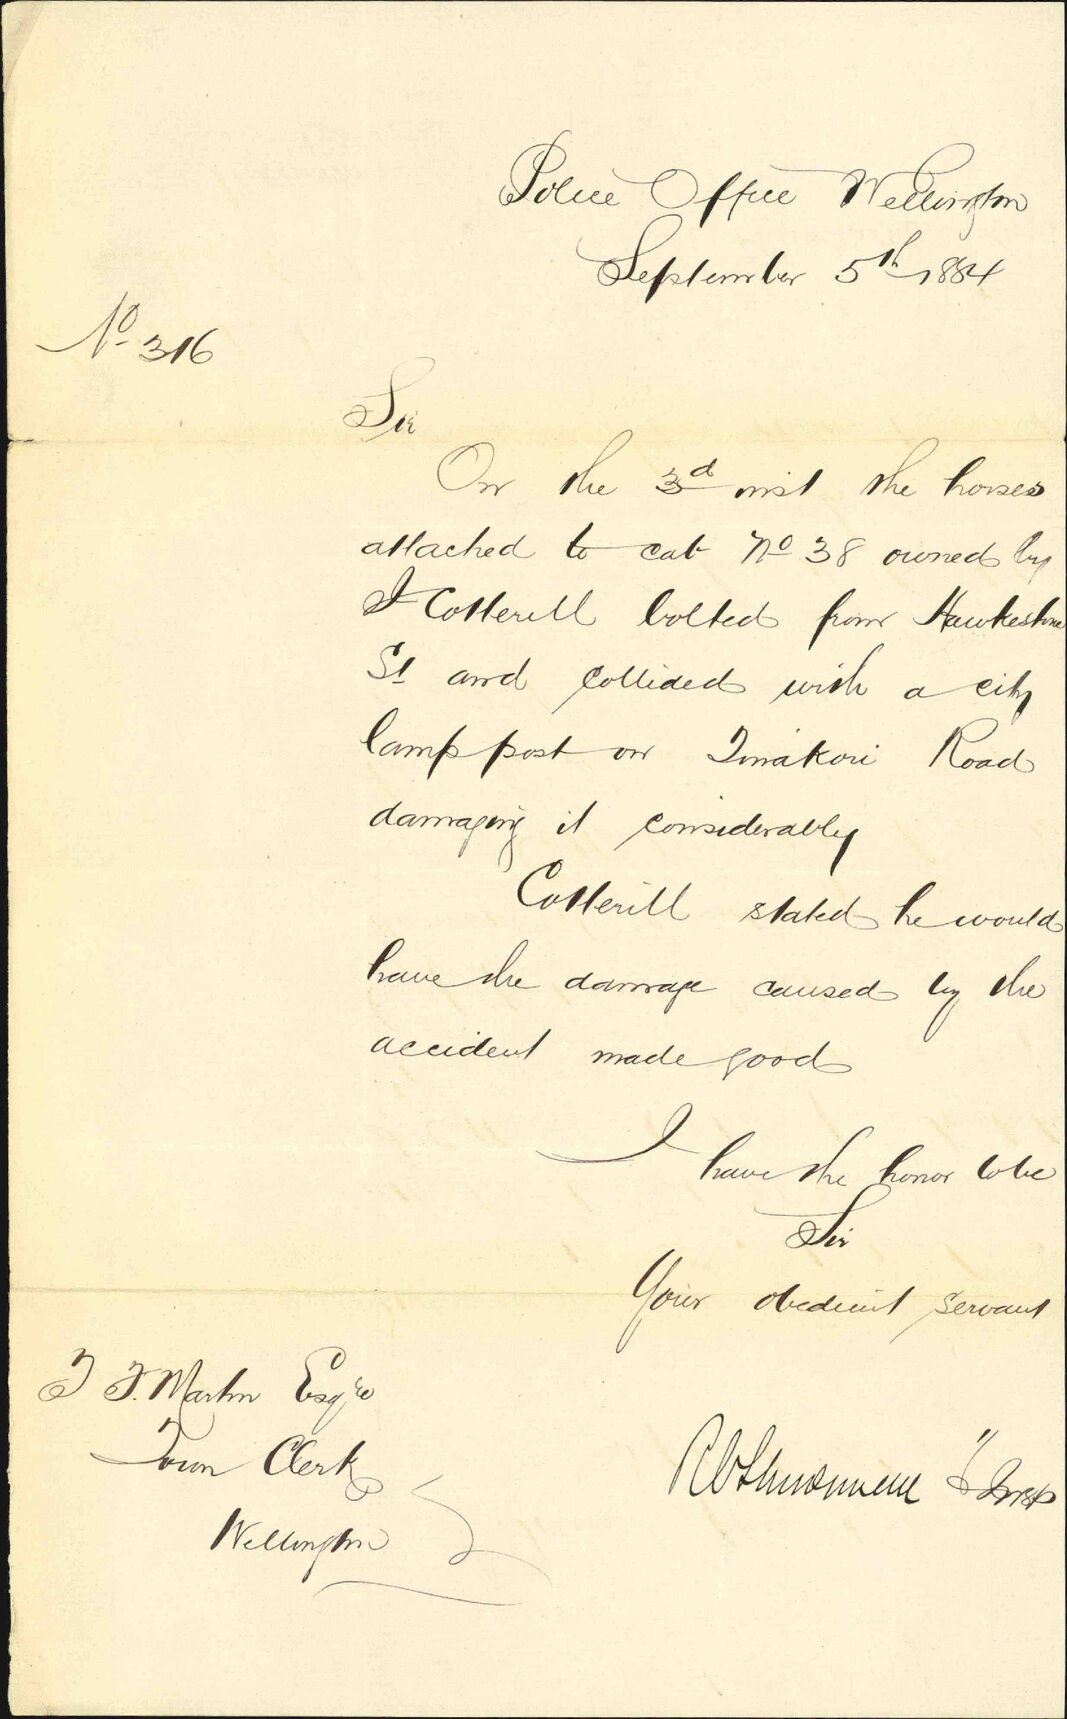 Police Office Wellington
September 5th 1884
No 316
Sir
On the 3d inst the horses
attached to cab No 38 owned by
J Cotterill bolted from Hawkestone
St and collided with a city
lamp post on Tinakori Road
damaging it considerably
Cotterill stated he would
have the damage caused by the
accident made good
I have the honor to be
Sir
Your obedient servant
T F. Martin Esqre
Town Clerk
Wellington
Insp